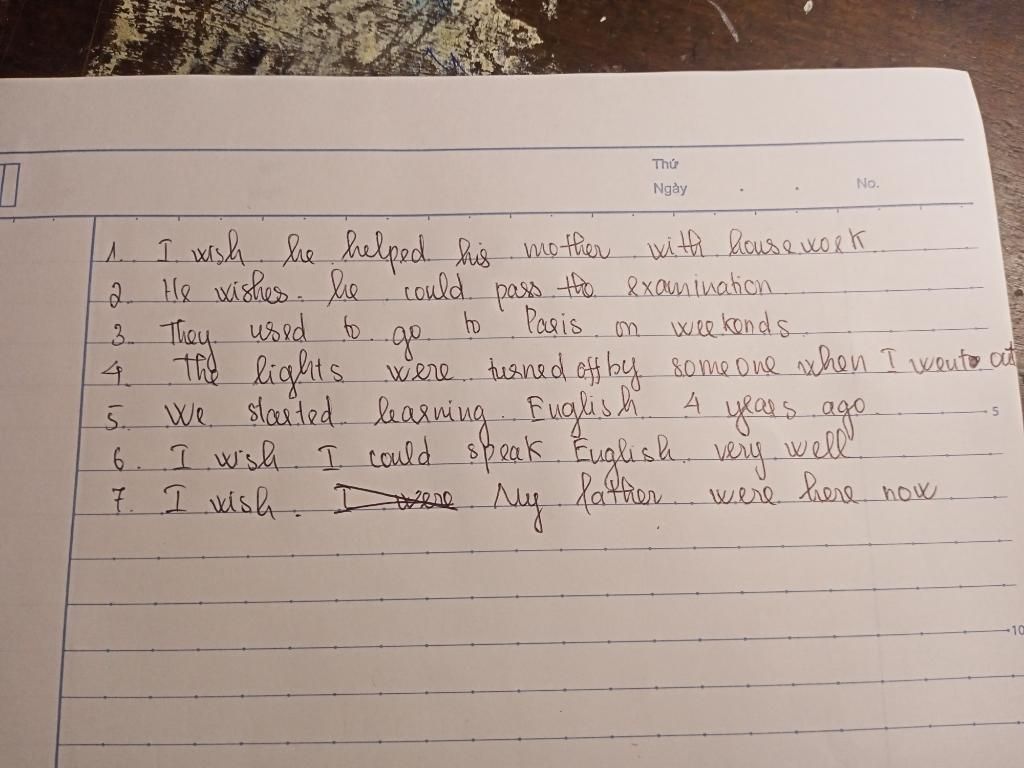 Thứ
Ngày . . No.
1. I wish he helped his mother with housework
2. He wishes he could pass the examination
3. They used to go to Paris on weekends
4. The lights were turned off by someone when I went out
5. We started learning English 4 years ago
5
6. I wish I could speak English very well
7. I wish. My father were here now
10